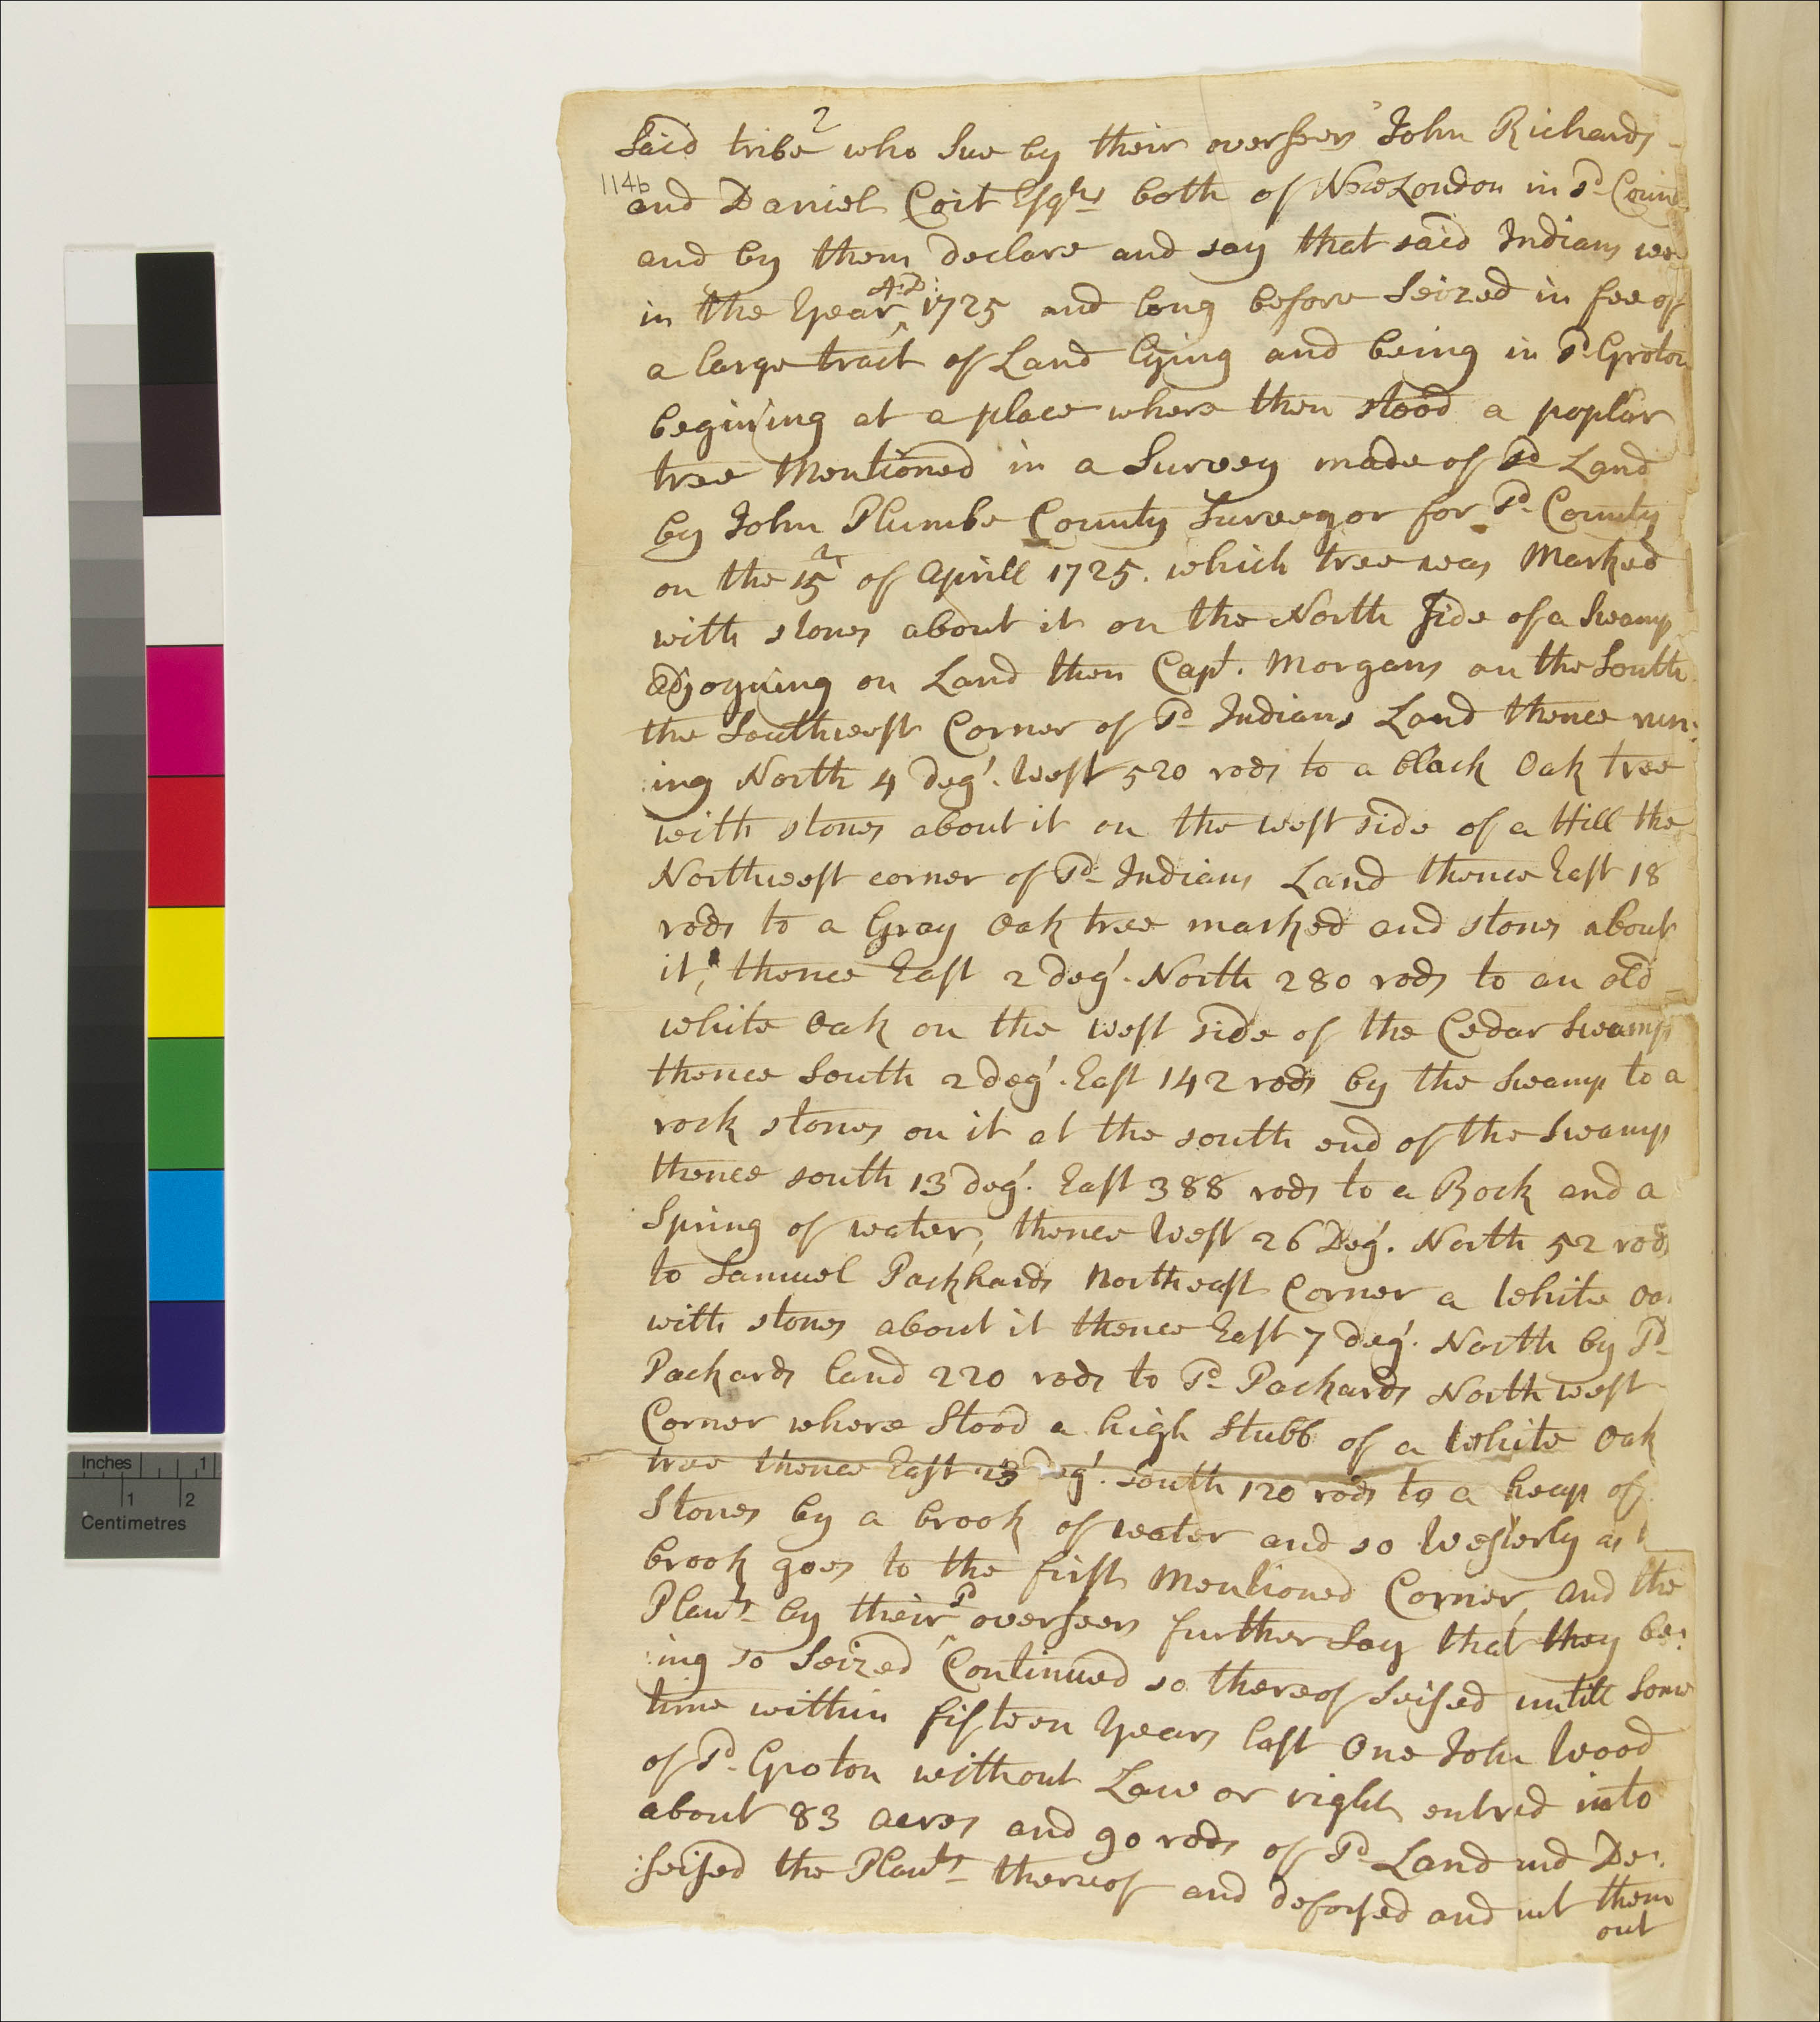 2
Said tribe who Sue by their overseers John Richards
114b
and Daniel Coit Esqrs both of New London in Sd Coun
and by them declare and say that said Indians we
in the Year A:D: 1725 and long before Seized in fee of
a large tract of Land lying and being in Sd Groton
begining at a place where then stood a poplar
tree Mentioned in a Survey made of Sd Land
by John Plumbe County Surveyor for Sd County
on the 15 of Aprill 1725. which tree was Marked
with stones about it on the North Side of a Swamp
Adjoyning on Land then Capt. Morgans on the South
the Southwest Corner of Sd Indians Land thence run:
:ing North 4 deg'. West 520 rods to a black Oak tree
with stones about it on the west side of a Hill the
Northwest corner of Sd Indians Land thence East 18
rods to a Gray Oak tree marked and stones about
it, thence East 2 deg'. North 280 rods to an old
white Oak on the west side of the Cedar Swamp
thence South 2 deg'. East 142 rods by the Swamp to a
rock stones on it at the south end of the Swamp
thence south 13 deg'. East 388 rods to a Rock and a
Spring of water, thence West 26 Deg'. North 52 rods
to Samuel Packhards Northeast Corner a White Oa
with stones about it thence East 7 deg'. North by Sd
Packards land 220 rods to Sd Packards North west
Corner where Stood a high Stubb of a White Oak
tree thence East 23 Deg'. South 120 rods to a heap of
Stones by a brook of water and so Westerly as
brook goes to the first Mentioned Corner, and the
Plants by their Sd overseers further Say that they be:
:ing so Seized Continued so thereof Seised untill Some
time within fifteen Years last One John Wood
of Sd Groton without Law or right entred into
about 83 acres and 90 rods of Sd Land and De:
:seised the Plants thereof and deforsed and put them
out